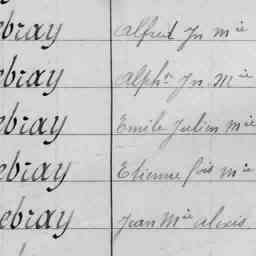 ebray Alfred Jn Mie
ebray Alphe Jn Mie
ebray Emile Julien Mie
ebray Etienne fois Mie
ebray Jean Mie Alexis